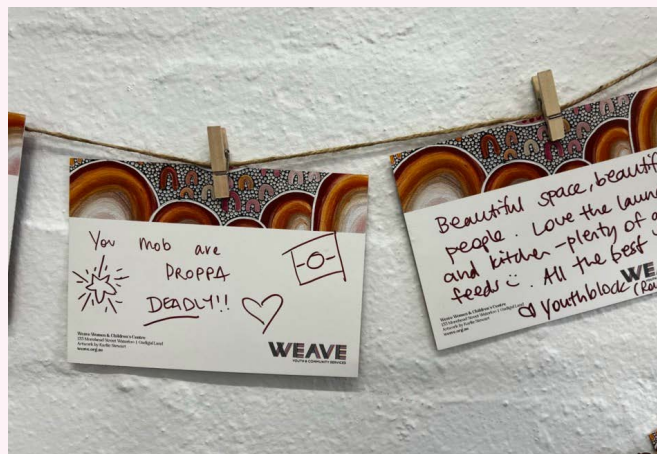 You mob are
PROPPA
DEADLY!!
Weave Women & Children's Centre
Artwork by
weave.org.au
WEAVE
YOUTH & COMMUNITY SERVICES
Beautiful space, beautif
people. Love the laun
and kitchen - plenty of g
feeds. All the best
Youthblock
Weave Women & Children's Centre
weave.org.au
WE